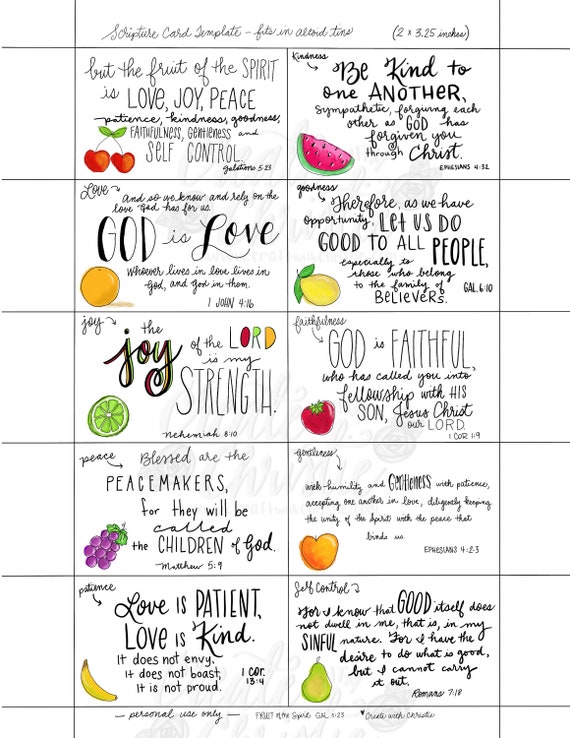 Scripture Card Template - fits in altoid tins (2 x 3.25 inches)
but the fruit of the SPIRIT
is LOVE, JOY, PEACE
patience, kindness, goodness,
FAITHFULNESS, Gentleness and
SELF CONTROL.
Galatians 5:23
Kindness
Be Kind to
one ANOTHER,
Sympathetic, forgiving each
other as GOD has
forgiven you
through Christ.
EPHESIANS 4:32
Love
And so we know and rely on the
love God has for us.
GOD is Love
Whoever lives in love lives in
God, and God in them.
1 JOHN 4:16
goodness
Therefore, as we have
opportunity, LET US DO
GOOD TO ALL PEOPLE,
especially to
those who belong
to the family of
BELIEVERS.
GAL. 6:10
joy
the
joy of the LORD
is my
STRENGTH.
Nehemiah 8:10
faithfulness
GOD is FAITHFUL,
who has called you into
fellowship with HIS
SON, Jesus Christ
our LORD.
1 COR 1:9
peace
Blessed are the
PEACEMAKERS,
for they will be
called
the CHILDREN of God.
Matthew 5:9
gentleness
with humility and GENTLENESS with patience,
accepting one another in love, diligently keeping
the unity of the Spirit with the peace that
binds us.
EPHESIANS 4:2-3
patience
Love is PATIENT,
LOVE is Kind.
It does not envy.
It does not boast,
It is not proud.
1 COR.
13:4
Self Control
For I know that GOOD itself does
not dwell in me, that is, in my
SINFUL nature. For I have the
desire to do what is good,
but I cannot carry
it out.
Romans 7:18
— personal use only — FRUIT of the Spirit GAL 5:23 ♥Create with Christie